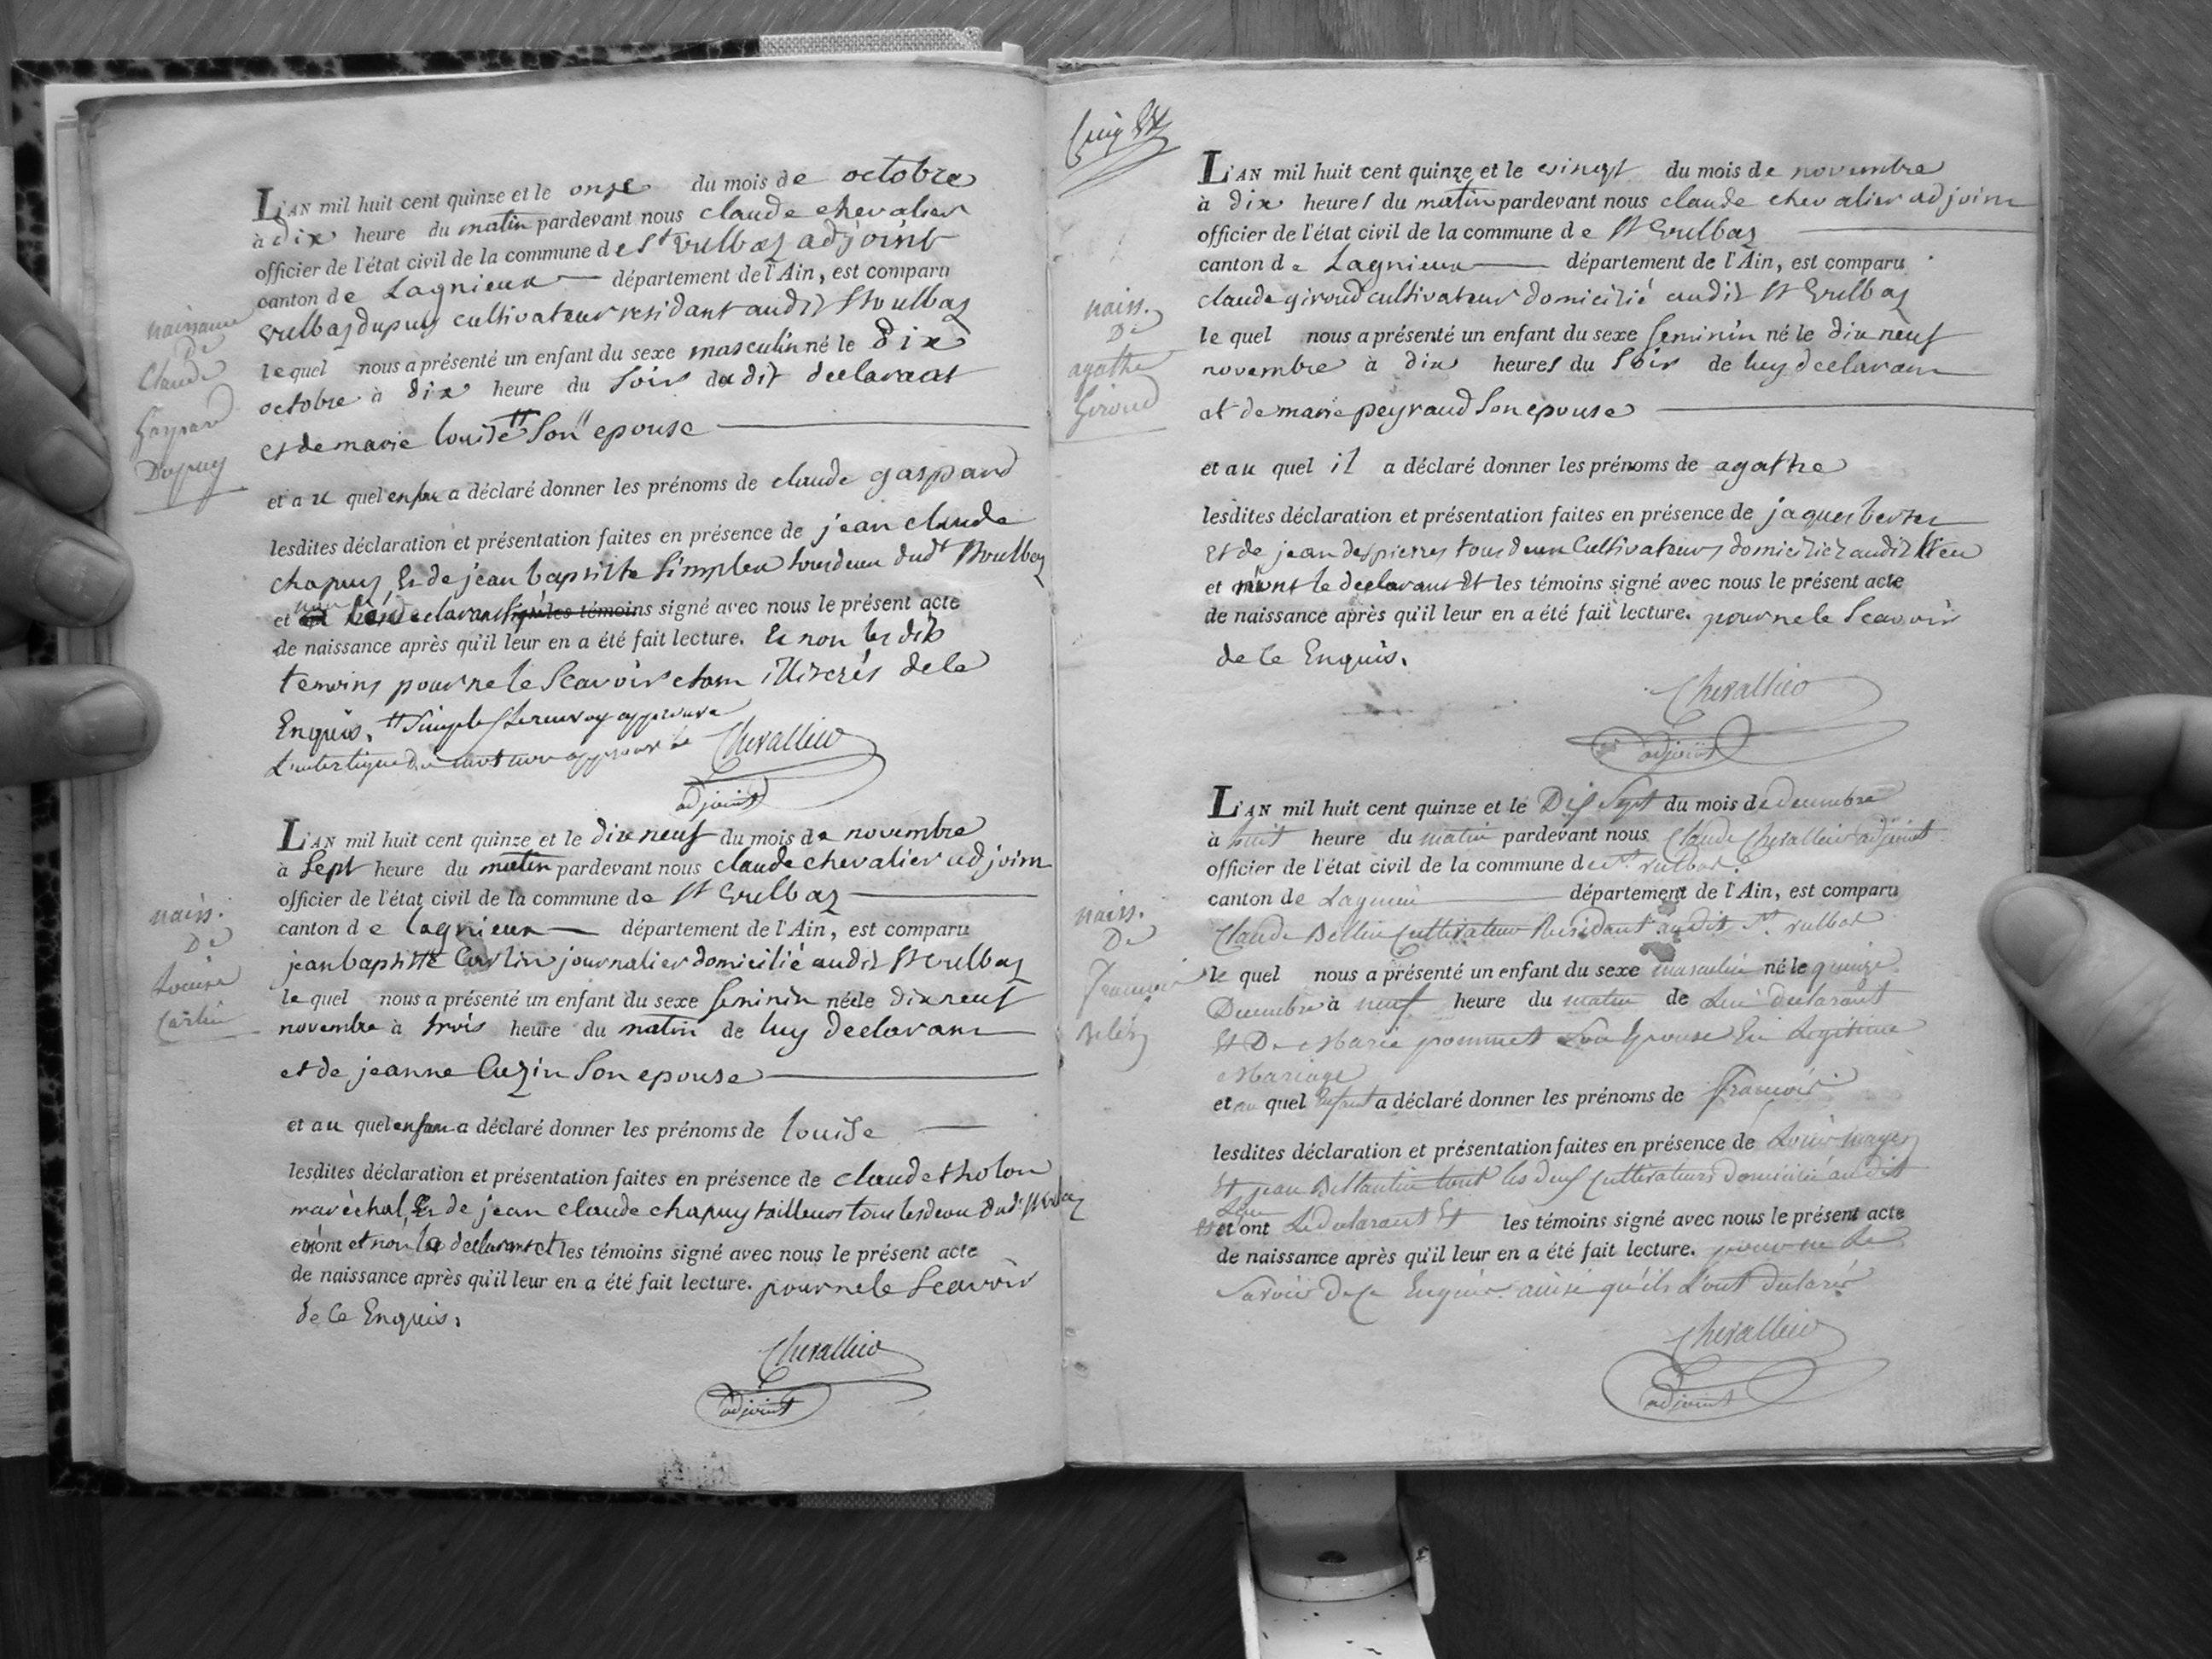 naissance
de
Claude
Gaspard
Dupuy
L'AN mil huit cent quinze et le onze du mois de octobre
à dix heure du matin pardevant nous claude chevalier
officier de l'état civil de la commune de St Vulbaz adjoint
canton de Lagnieux département de l'Ain, est comparu
Vulbaz dupuy cultivateur residant audit St Vulbaz
le quel nous a présenté un enfant du sexe masculin né le dix
octobre à dix heure du soir dudit declarant
et de marie louise # son epouse
et au quel enfan a déclaré donner les prénoms de claude gaspard
lesdites déclaration et présentation faites en présence de jean claude
chapuy, Et de jean baptiste Simplex tous deux dudt St Vulbaz
et declarant les témoins signé avec nous le présent acte
de naissance après qu'il leur en a été fait lecture. Et non les dits
temoins pour ne le scavoir etam illitérés de ce
Enquis. # Simple
Chevallier
adjoint
naiss.
De
Louise
Carlin
L'AN mil huit cent quinze et le dix neuf du mois de novembre
à Sept heure du matin pardevant nous claude chevalier adjoint
officier de l'état civil de la commune de St Vulbaz
canton de lagnieux département de l'Ain, est comparu
jean baptiste Carlin journalier domicilié audit St Vulbaz
le quel nous a présenté un enfant du sexe feminin né le dix neuf
novembre à trois heure du matin de luy declarant
et de jeanne Cuzin son epouse
et au quel enfam a déclaré donner les prénoms de louise
lesdites déclaration et présentation faites en présence de claude tholon
maréchal, Et de jean claude chapuy tailleur tous les deux dud. St Vulbaz
et n'ont et non le declarant et les témoins signé avec nous le présent acte
de naissance après qu'il leur en a été fait lecture. pour ne le scavoir
de ce Enquis.
Chevallier
adjoint
naiss.
De
agathe
Giroud
L'AN mil huit cent quinze et le vingt du mois de novembre
à dix heures du matin pardevant nous claude chevalier adjoint
officier de l'état civil de la commune de St Vulbaz
canton de Lagnieux département de l'Ain, est comparu
claude giroud cultivateur domicilié audit St Vulbaz
le quel nous a présenté un enfant du sexe feminin né le dix neuf
novembre à dix heures du soir de luy declaram
et de marie peyraud son epouse
et au quel il a déclaré donner les prénoms de agathe
lesdites déclaration et présentation faites en présence de jaques
et de jean despierres tous deux Cultivateurs domiciliez audit lieu
et n'ont le declarant Et les témoins signé avec nous le présent acte
de naissance après qu'il leur en a été fait lecture. pour ne le Scavoir
de ce Enquis.
Chevallier
adjoint
naiss.
De
Francois
L'AN mil huit cent quinze et le Dix Sept du mois de decembre
à huit heure du matin pardevant nous Claude Chevallier adjoint
officier de l'état civil de la commune de St. vulbas.
canton de Lagnieu département de l'Ain, est comparu
Claude Bellin Cultivateur Residant audit St. vulbas
le quel nous a présenté un enfant du sexe masculin né le quinze
Decembre à neuf heure du matin de Lui declarant
Et De Marie pommet Son Epouse En Legitime
Mariage
et au quel Enfant a déclaré donner les prénoms de Francois.
lesdites déclaration et présentation faites en présence de Louis
Et jean tout les deux Cultivateurs domicilié audit
Lieu
et ont Le declarant Et les témoins signé avec nous le présent acte
de naissance après qu'il leur en a été fait lecture. pour ne Le
Savoir De Ce Enquis. ainsi qu'ils L'ont declaré
Chevallier
adjoint